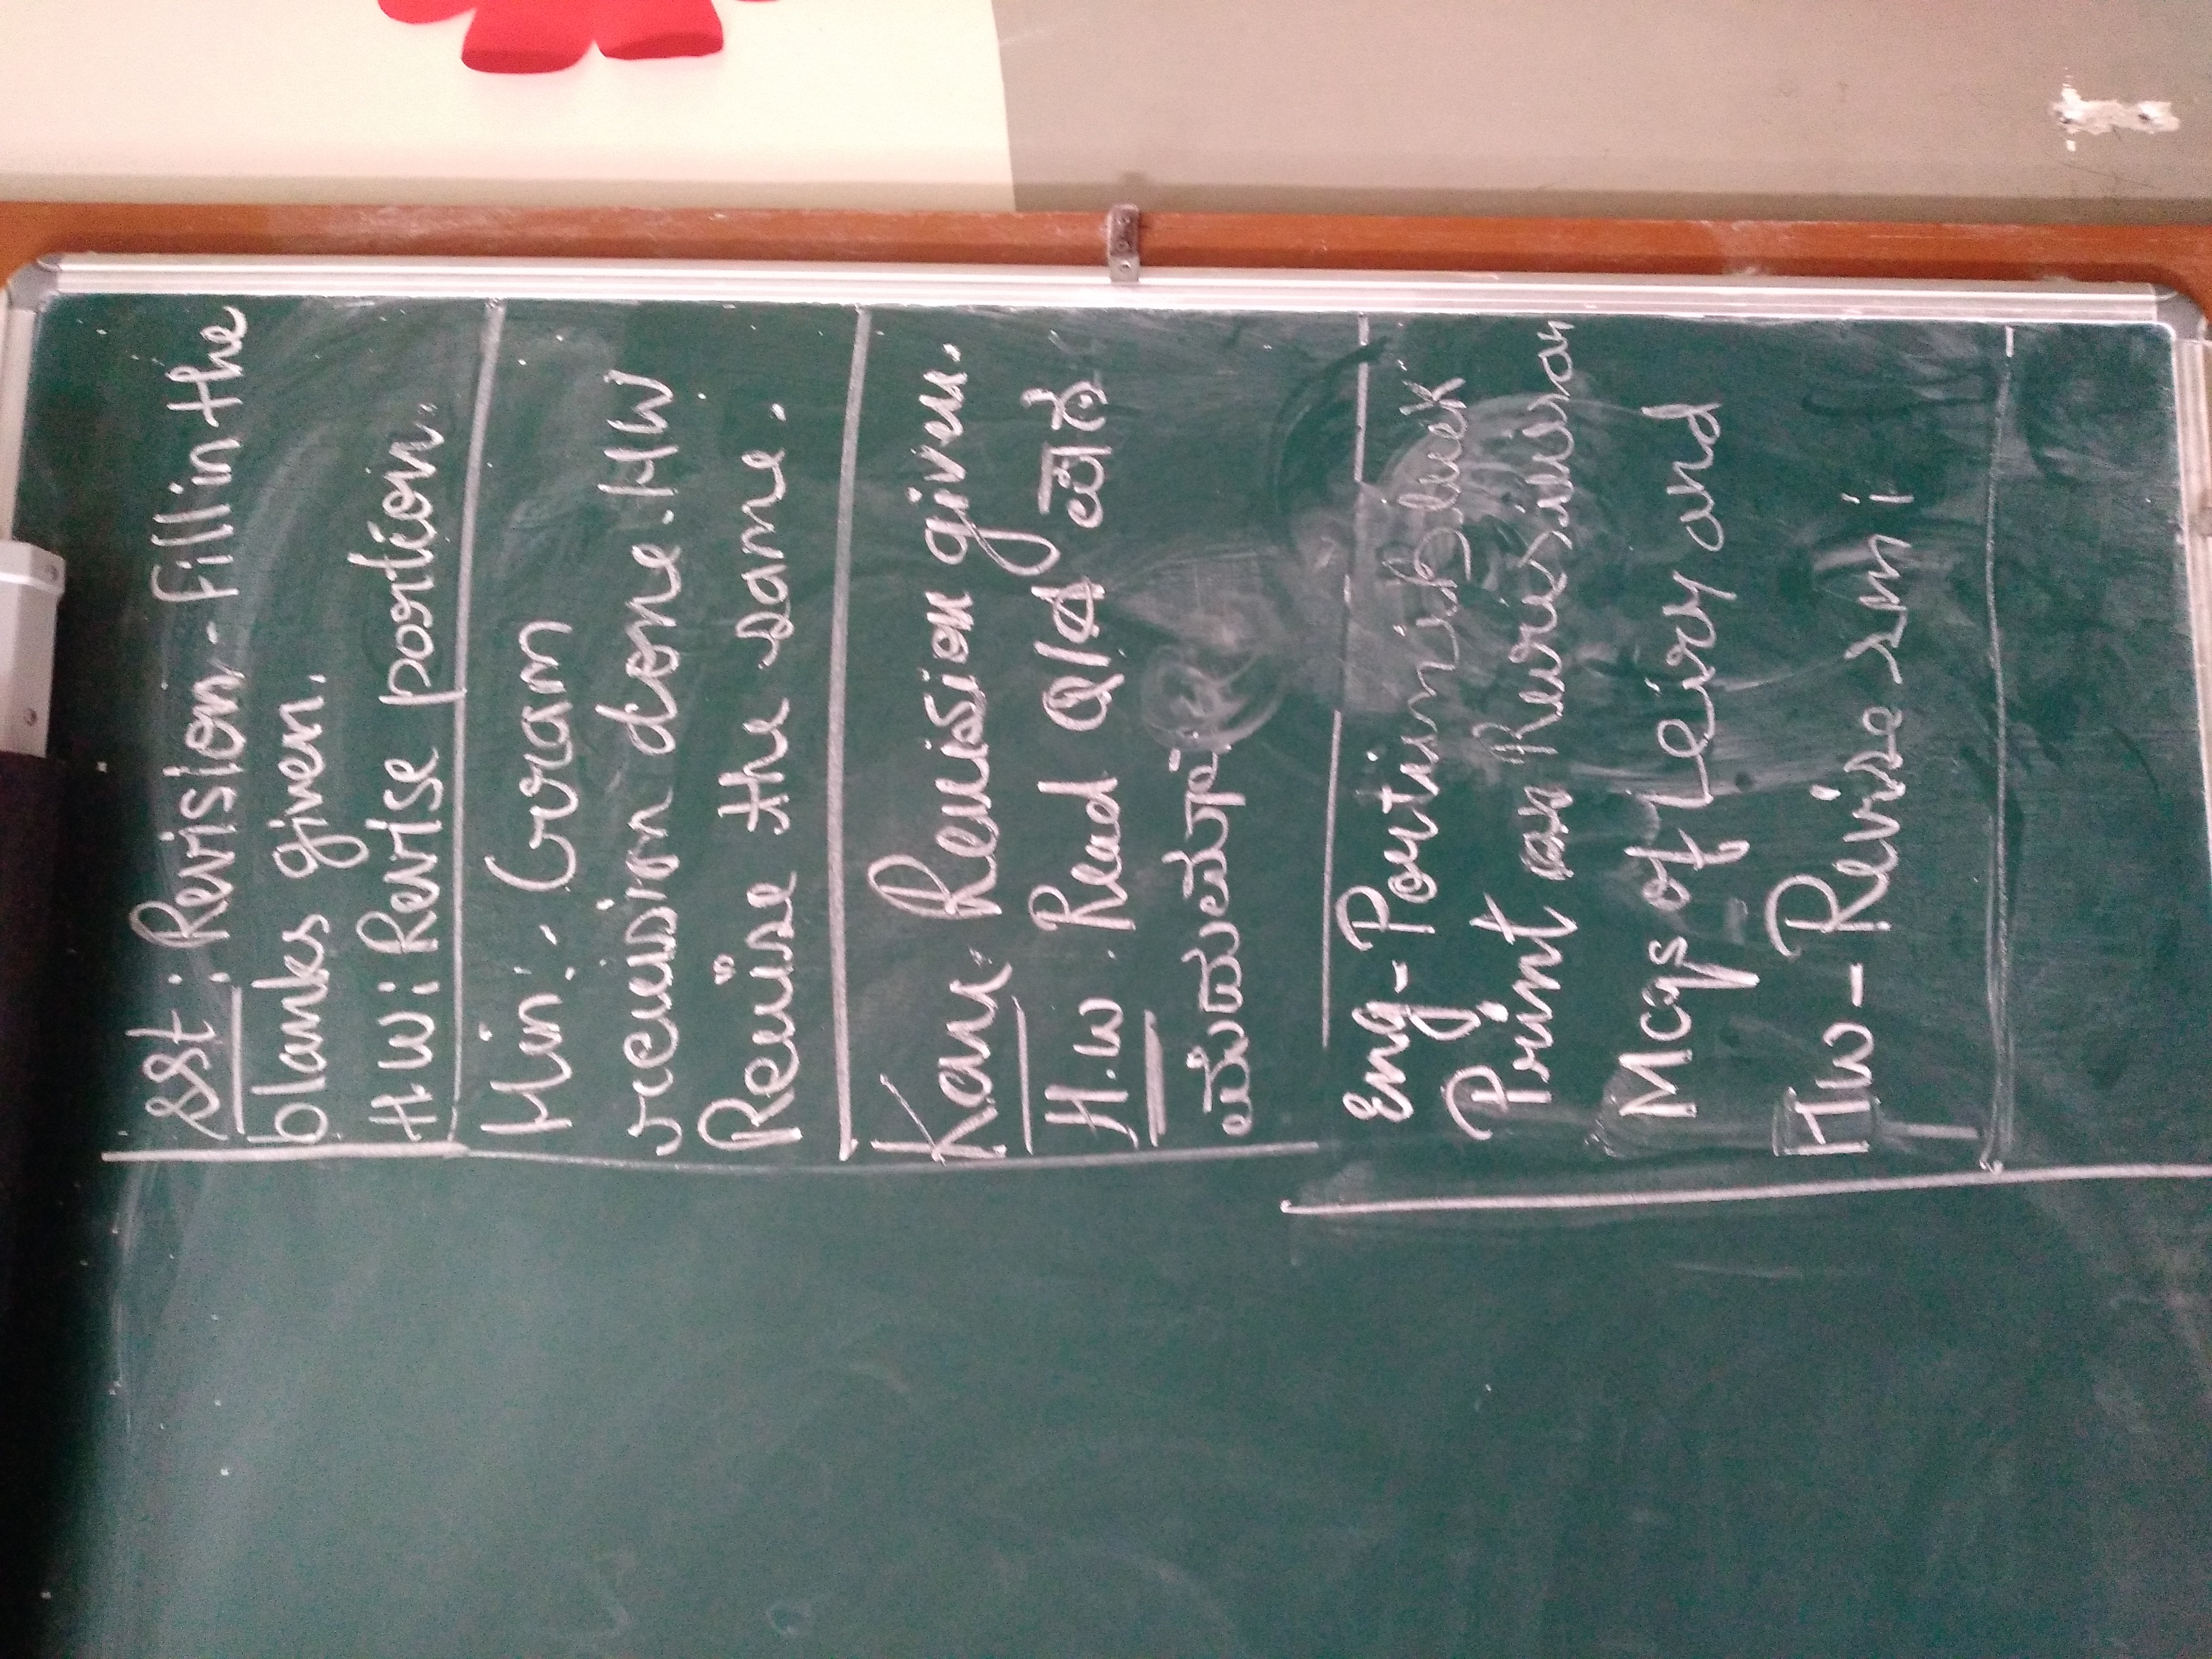 SSt : Revision - fill in the
blanks given.
H W : Revise portion.
Hin : Gram
revision done. HW
Revise the same.
Kan. Revision given.
H.W. Read Q/A
Eng - Portion
Print
Mcqs of and
HW - Revise